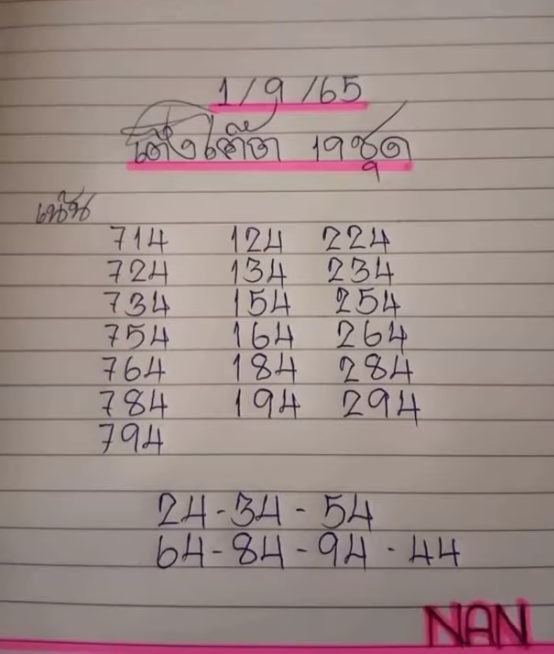 1/9/65
19ชุด
เน้น
714 124 224
724 134 234
734 154 254
754 164 264
764 184 284
784 194 294
794
24-34-54
64-84-94-44
NAN